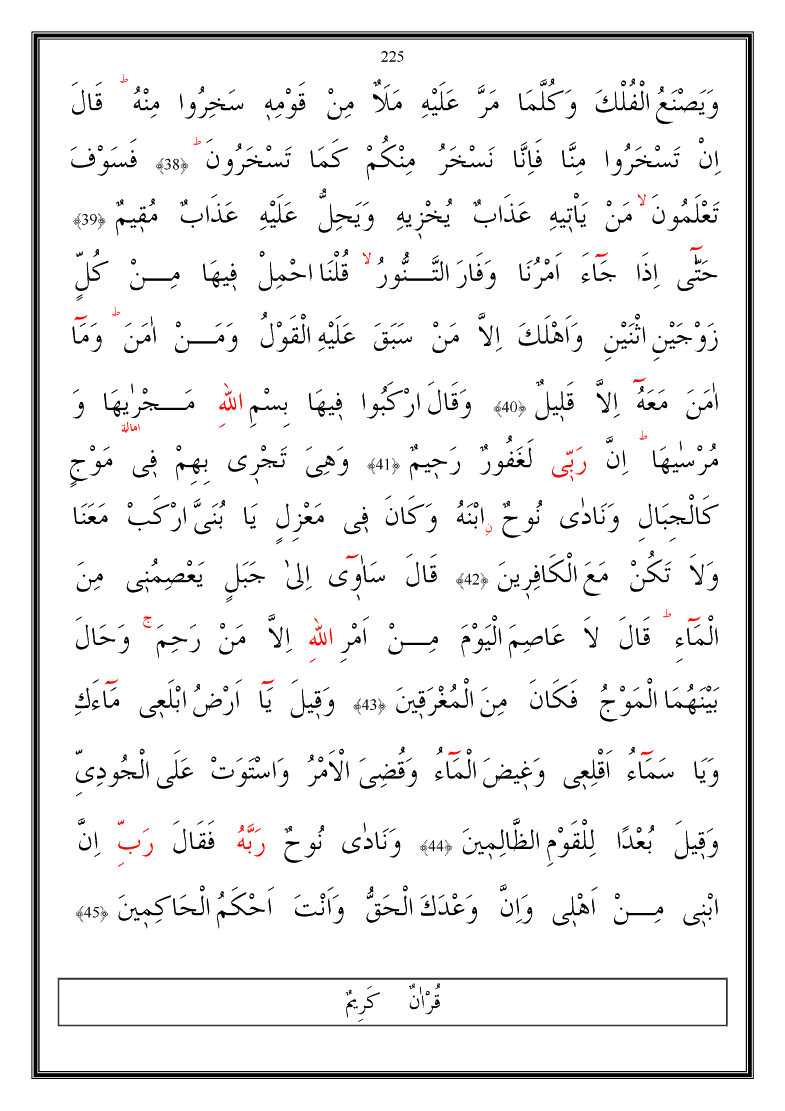 225
وَيَصْنَعُ الْفُلْكَ وَكُلَّمَا مَرَّ عَلَيْهِ مَلَاٌ مِنْ قَوْمِهٖ سَخِرُوا مِنْهُ ۜ قَالَ
اِنْ تَسْخَرُوا مِنَّا فَاِنَّا نَسْخَرُ مِنْكُمْ كَمَا تَسْخَرُونَ ۜ ﴿38﴾ فَسَوْفَ
تَعْلَمُونَ ۙ مَنْ يَاْتٖيهِ عَذَابٌ يُخْزٖيهِ وَيَحِلُّ عَلَيْهِ عَذَابٌ مُقٖيمٌ ﴿39﴾
حَتّٰٓى اِذَا جَٓاءَ اَمْرُنَا وَفَارَ التَّـنُّورُ ۙ قُلْنَا احْمِلْ فٖيهَا مِـنْ كُلٍّ
زَوْجَيْنِ اثْنَيْنِ وَاَهْلَكَ اِلَّا مَنْ سَبَقَ عَلَيْهِ الْقَوْلُ وَمَـنْ اٰمَنَ ۜ وَمَٓا
اٰمَنَ مَعَهُٓ اِلَّا قَلٖيلٌ ﴿40﴾ وَقَالَ ارْكَبُوا فٖيهَا بِسْمِ اللّٰهِ مَـجْرٰۭيهَا وَ
امالة
مُرْسٰيهَا ۜ اِنَّ رَبّٖى لَغَفُورٌ رَحٖيمٌ ﴿41﴾ وَهِىَ تَجْرٖى بِهِمْ فٖى مَوْجٍ
كَالْجِبَالِ وَنَادٰى نُوحٌ ۨابْنَهُ وَكَانَ فٖى مَعْزِلٍ يَا بُنَىَّ ارْكَبْ مَعَنَا
وَلَا تَكُنْ مَعَ الْكَافِرٖينَ ﴿42﴾ قَالَ سَاٰوٖٓى اِلٰى جَبَلٍ يَعْصِمُنٖى مِنَ
الْمَٓاءِ ۜ قَالَ لَا عَاصِمَ الْيَوْمَ مِـنْ اَمْرِ اللّٰهِ اِلَّا مَنْ رَحِمَ ۚ وَحَالَ
بَيْنَهُمَا الْمَوْجُ فَكَانَ مِنَ الْمُغْرَقٖينَ ﴿43﴾ وَقٖيلَ يَٓا اَرْضُ ابْلَعٖى مَٓاءَكِ
وَيَا سَمَٓاءُ اَقْلِعٖى وَغٖيضَ الْمَٓاءُ وَقُضِىَ الْاَمْرُ وَاسْتَوَتْ عَلَى الْجُودِىِّ
وَقٖيلَ بُعْدًا لِلْقَوْمِ الظَّالِمٖينَ ﴿44﴾ وَنَادٰى نُوحٌ رَبَّهُ فَقَالَ رَبِّ اِنَّ
ابْنٖى مِـنْ اَهْلٖى وَاِنَّ وَعْدَكَ الْحَقُّ وَاَنْتَ اَحْكَمُ الْحَاكِمٖينَ ﴿45﴾
قُرْاٰنٌ كَرِيمٌ